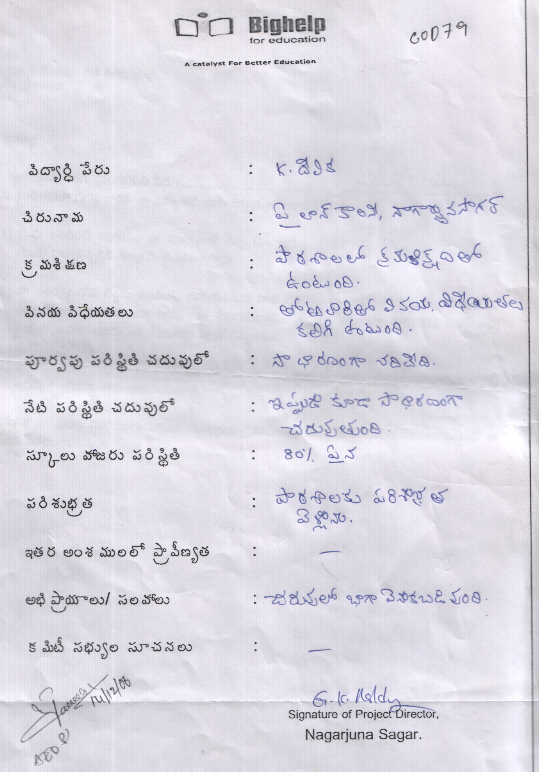 Bighelp
for education
A catalyst For Better Education
COD79
విద్యార్థి పేరు : K. దేవిక
చిరునామ : పైలాన్ కాలనీ, నాగార్జునసాగర్
క్రమశిక్షణ : పాఠశాలలో క్రమశిక్షణతో
ఉంటుంది.
వినయ విధేయతలు : తోటివారితో వినయ విధేయతలు
కలిగి ఉంటుంది.
పూర్వపు పరిస్థితి చదువులో : సాధారణంగా చదివేది.
నేటి పరిస్థితి చదువులో : ఇప్పుడు కూడా సాధారణంగా
చదువుతుంది.
స్కూలు హాజరు పరిస్థితి : 80% పైన
పరిశుభ్రత : పాఠశాలకు పరిశుభ్రత
ఇతర అంశములలో ప్రావీణ్యత : —
అభిప్రాయాలు/ సలహాలు : చదువులో బాగా వెనుకబడివుంది.
కమిటీ సభ్యుల సూచనలు : —
14/12/08
G.K. Reddy
Signature of Project Director,
Nagarjuna Sagar.